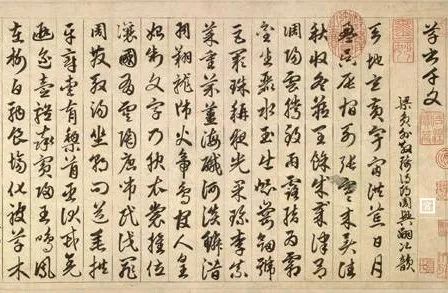 草書千文
梁員外散騎侍郎周興嗣次韻
天地玄黃宇宙洪荒日月
盈昃辰宿列張寒來暑往
秋收冬藏閏餘成歲律呂
調陽雲騰致雨露結為霜
金生麗水玉出崑岡劍號
巨闕珠稱夜光果珍李柰
菜重芥薑海鹹河淡鱗潛
羽翔龍師火帝鳥官人皇
始制文字乃服衣裳推位
讓國有虞陶唐弔民伐罪
周發殷湯坐朝問道垂拱
平章愛育黎首臣伏戎羌
遐邇壹體率賓歸王鳴鳳
在樹白駒食場化被草木